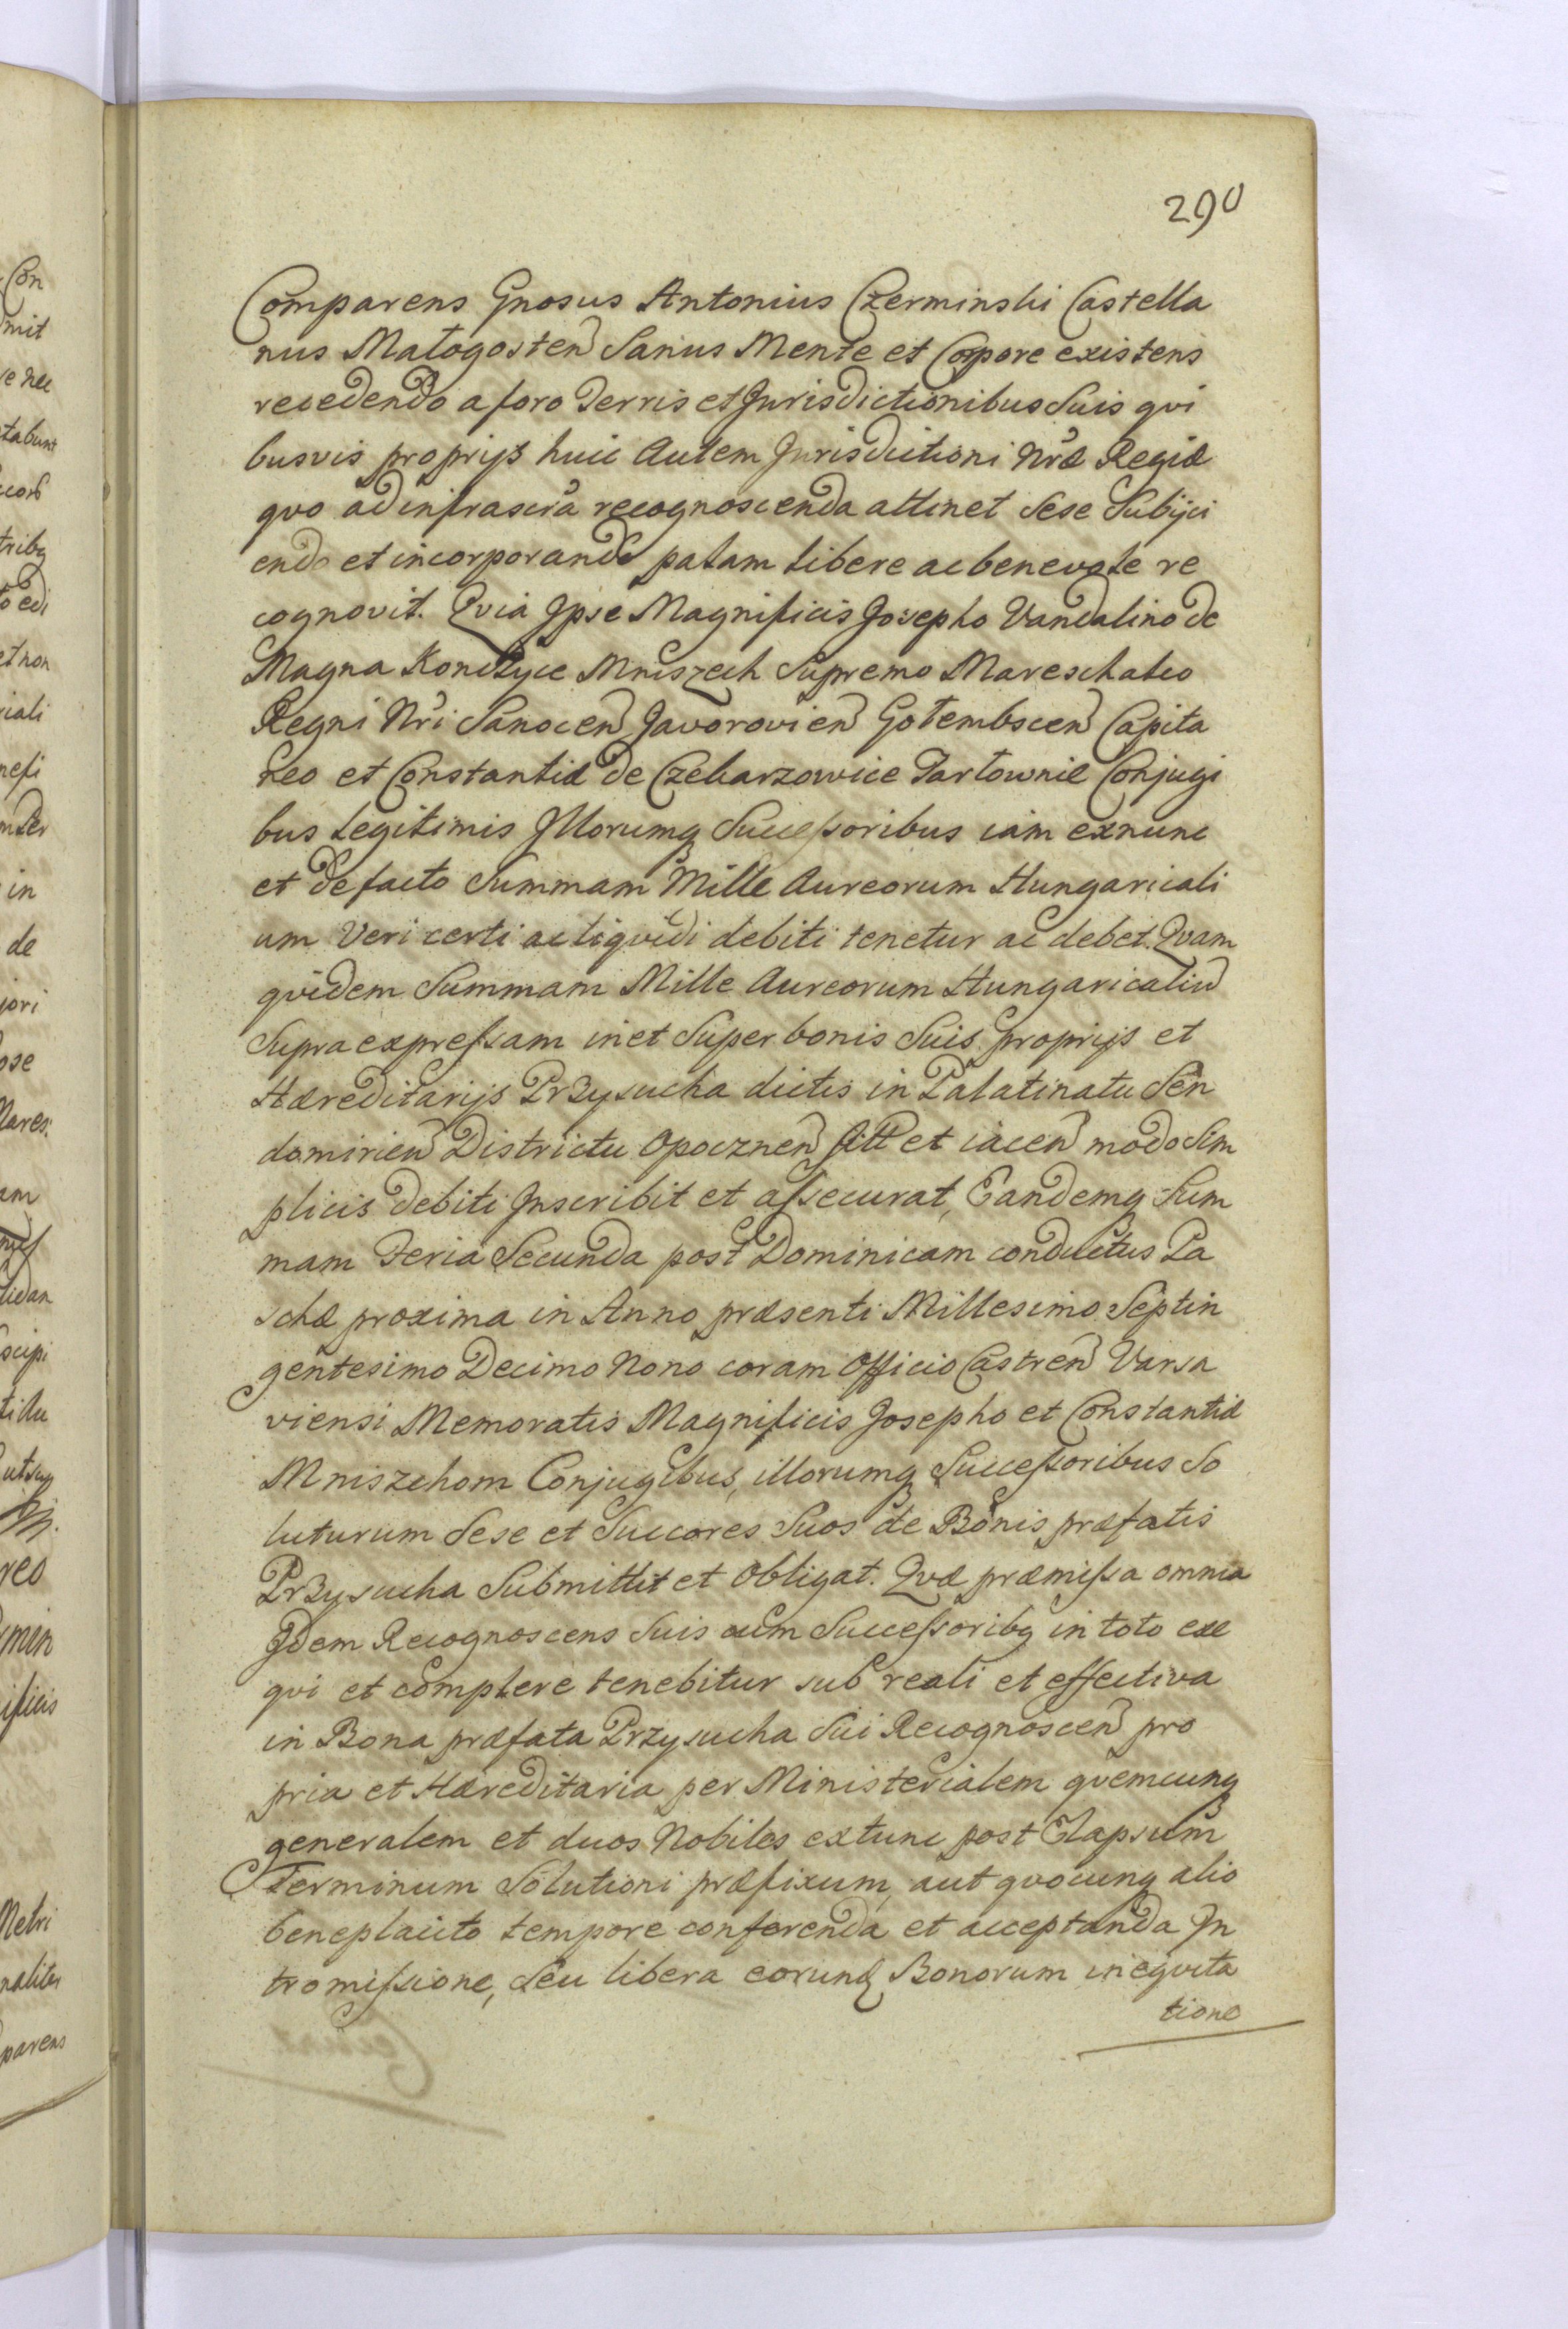 290
Comparens Gnosus Antonius Czerminski Castella
nus Małogosten Sanus Mente et Corpore existens
recedendo a foro Terris et Jurisdictionibus Suis qvi
busvis proprijs huic Autem Jurisdictioni Nræ Regiæ
qvo ad infrascra recognoscenda attinet Sese Subijci
endo et incorporando palam libere ac benevole re
cognovit. Qvia Ipse Magnificis Josepho Vandalino de
Magna Konczyce Mniszech Supremo Mareschalco
Regni Nri Sanocen Javorovien Gołembscen Capita
neo et Constantiæ de Czekarzowice Tarłownie Conjugi
bus Legitimis Illorumq Successoribus iam exnunc
et defacto Summam Mille Aureorum Hungaricali
um Veri certi ac liqvidi debiti tenetur ac debet. Qvam
qvidem Summam Mille Aureorum Hungaricaliu
Supra expressam in et Super bonis Suis proprijs et
Hæreditarijs Przysucha dictis in Palatinatu Sen
domirien Districtu Opocznen Sitt et iacen modo Sim
plicis debiti Inscribit et assecurat, Eandemq Sum
mam Feria Secunda post Dominicam conductus Pa
schæ proxima in Anno præsenti Millesimo Septin
gentesimo Decimo Nono coram Officio Castren Varsa
viensi Memoratis Magnificis Josepho et Constantiæ
Mniszchom Conjugibus, illorumq Successoribus So
luturum Sese et Succores Suos de Bonis præfatis
Przysucha Submittit et Obligat. Qvæ præmissa omnia
Idem Recognoscens Suis cum Successoribq in toto exe
qvi et complere tenebitur sub reali et effectiva
in Bona præfata Przysucha Sui Recognoscen pro
pria et Hæreditaria per Ministerialem qvemcunq
generalem et duos Nobiles extunc post Elapsum
Terminum Solutioni præfixum, aut qvocunq alio
beneplacito tempore conferenda et acceptanda In
tromissione, Seu libera eorund Bonorum ineqvita
tione